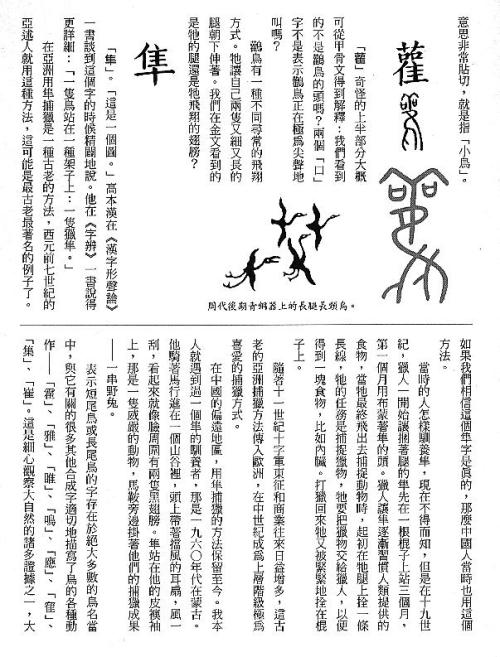 意思非常貼切，就是指「小鳥」。
雚
「雚」奇怪的上半部分大概
可從甲骨文得到解釋：我們看到
的不是鸛鳥的頭嗎？兩個「口」
字不是表示鸛鳥正在極為尖聲地
叫嗎？
鸛鳥有一種不同尋常的飛翔
方式。牠讓自己兩隻又細又長的
腿朝下伸著。我們在金文看到的
是牠的腿還是牠飛翔的翅膀？
周代後期青銅器上的長腿長頸鳥。
隼
「隼」。「這是一個圖。」高本漢在《漢字形聲論》
一書談到這個字的時候精闢地說。他在《字辨》一書說得
更詳細：「一隻鳥站在一種架子上：一隻獵隼。」
在亞洲用隼捕獵是一種古老的方法，西元前七世紀的
亞述人就用這種方法，這可能是最古老最著名的例子了。
如果我們相信這個隼字是真的，那麼中國人當時也用這個
方法。
當時的人怎樣馴養隼，現在不得而知，但是在十九世
紀，獵人一開始讓捆著腿的隼先在一根棍子上站三個月，
第一個月用布蒙著隼的頭。獵人讓隼逐漸習慣人類提供的
食物，當牠最終飛出去捕捉動物時，起初在牠腿上拴一條
長線，牠的任務是捕捉獵物，牠要把獵物交給獵人，以便
得到一塊食物，比如內臟。打獵回來牠又被緊緊地拴在棍
子上。
隨著十一世紀十字軍東征和商業往來日益增多，這古
老的亞洲捕獵方法傳入歐洲，在中世紀成為上層階級極為
喜愛的捕獵方式。
在中國的偏遠地區，用隼捕獵的方法保留至今。我本
人就遇到過一個隼的馴養者，那是一九六〇年代在蒙古。
他騎著馬行進在一個山谷裡，頭上帶著擋風的耳扇，風一
刮，看起來就像臉周圍有兩隻黑翅膀。隼站在他的皮襖袖
上，那是一隻威嚴的動物，馬鞍旁邊掛著他們的捕獵成果
——一串野兔。
表示短尾鳥或長尾鳥的字存在於絕大多數的鳥名當
中，與它有關的很多其他合成字適切地描寫了鳥的各種動
作——「霍」、「雅」、「雖」、「鳴」、「應」、「隺」、
「集」、「雀」。這是細心觀察大自然的諸多證據之一，大